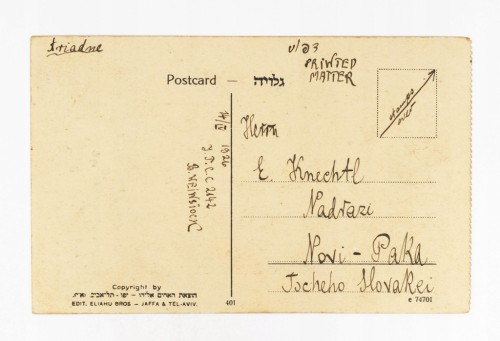 Ariadne
דפ/ס
PRINTED
MATTER
Postcard — גלויה
stamps
over
14/IV 1926
J.P.C.C 2142
B. WEINSTOCK
Herrn
E. Knechtl
Nadrazi
Novi - Paka
Tscheho Slovakei
Copyright by
הוצאת האחים אליהו – יפו-תל-אביב
EDIT. ELIAHU BROS – JAFFA & TEL-AVIV.
401
e 74701